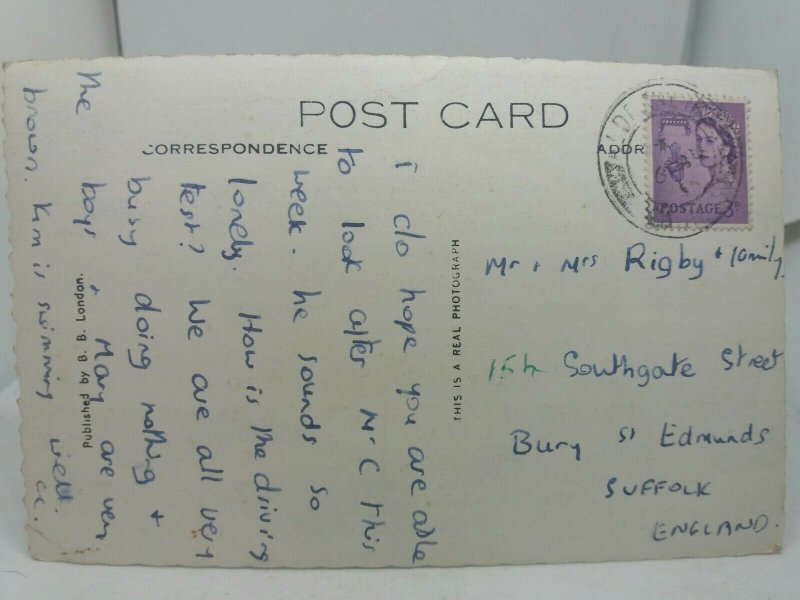 POST CARD
CORRESPONDENCE
ADDR
POSTAGE 3D
THIS IS A REAL PHOTOGRAPH
Published by B. B. London.
i do hope you are able
to look after Mr C this
week. he sounds so
lonely. How is the driving
test? We are all very
busy doing nothing +
the boys + Mary are very
brown. Kim is swimming well.
Mr + Mrs Rigby + family
Southgate Street
Bury St Edmunds
SUFFOLK
ENGLAND.